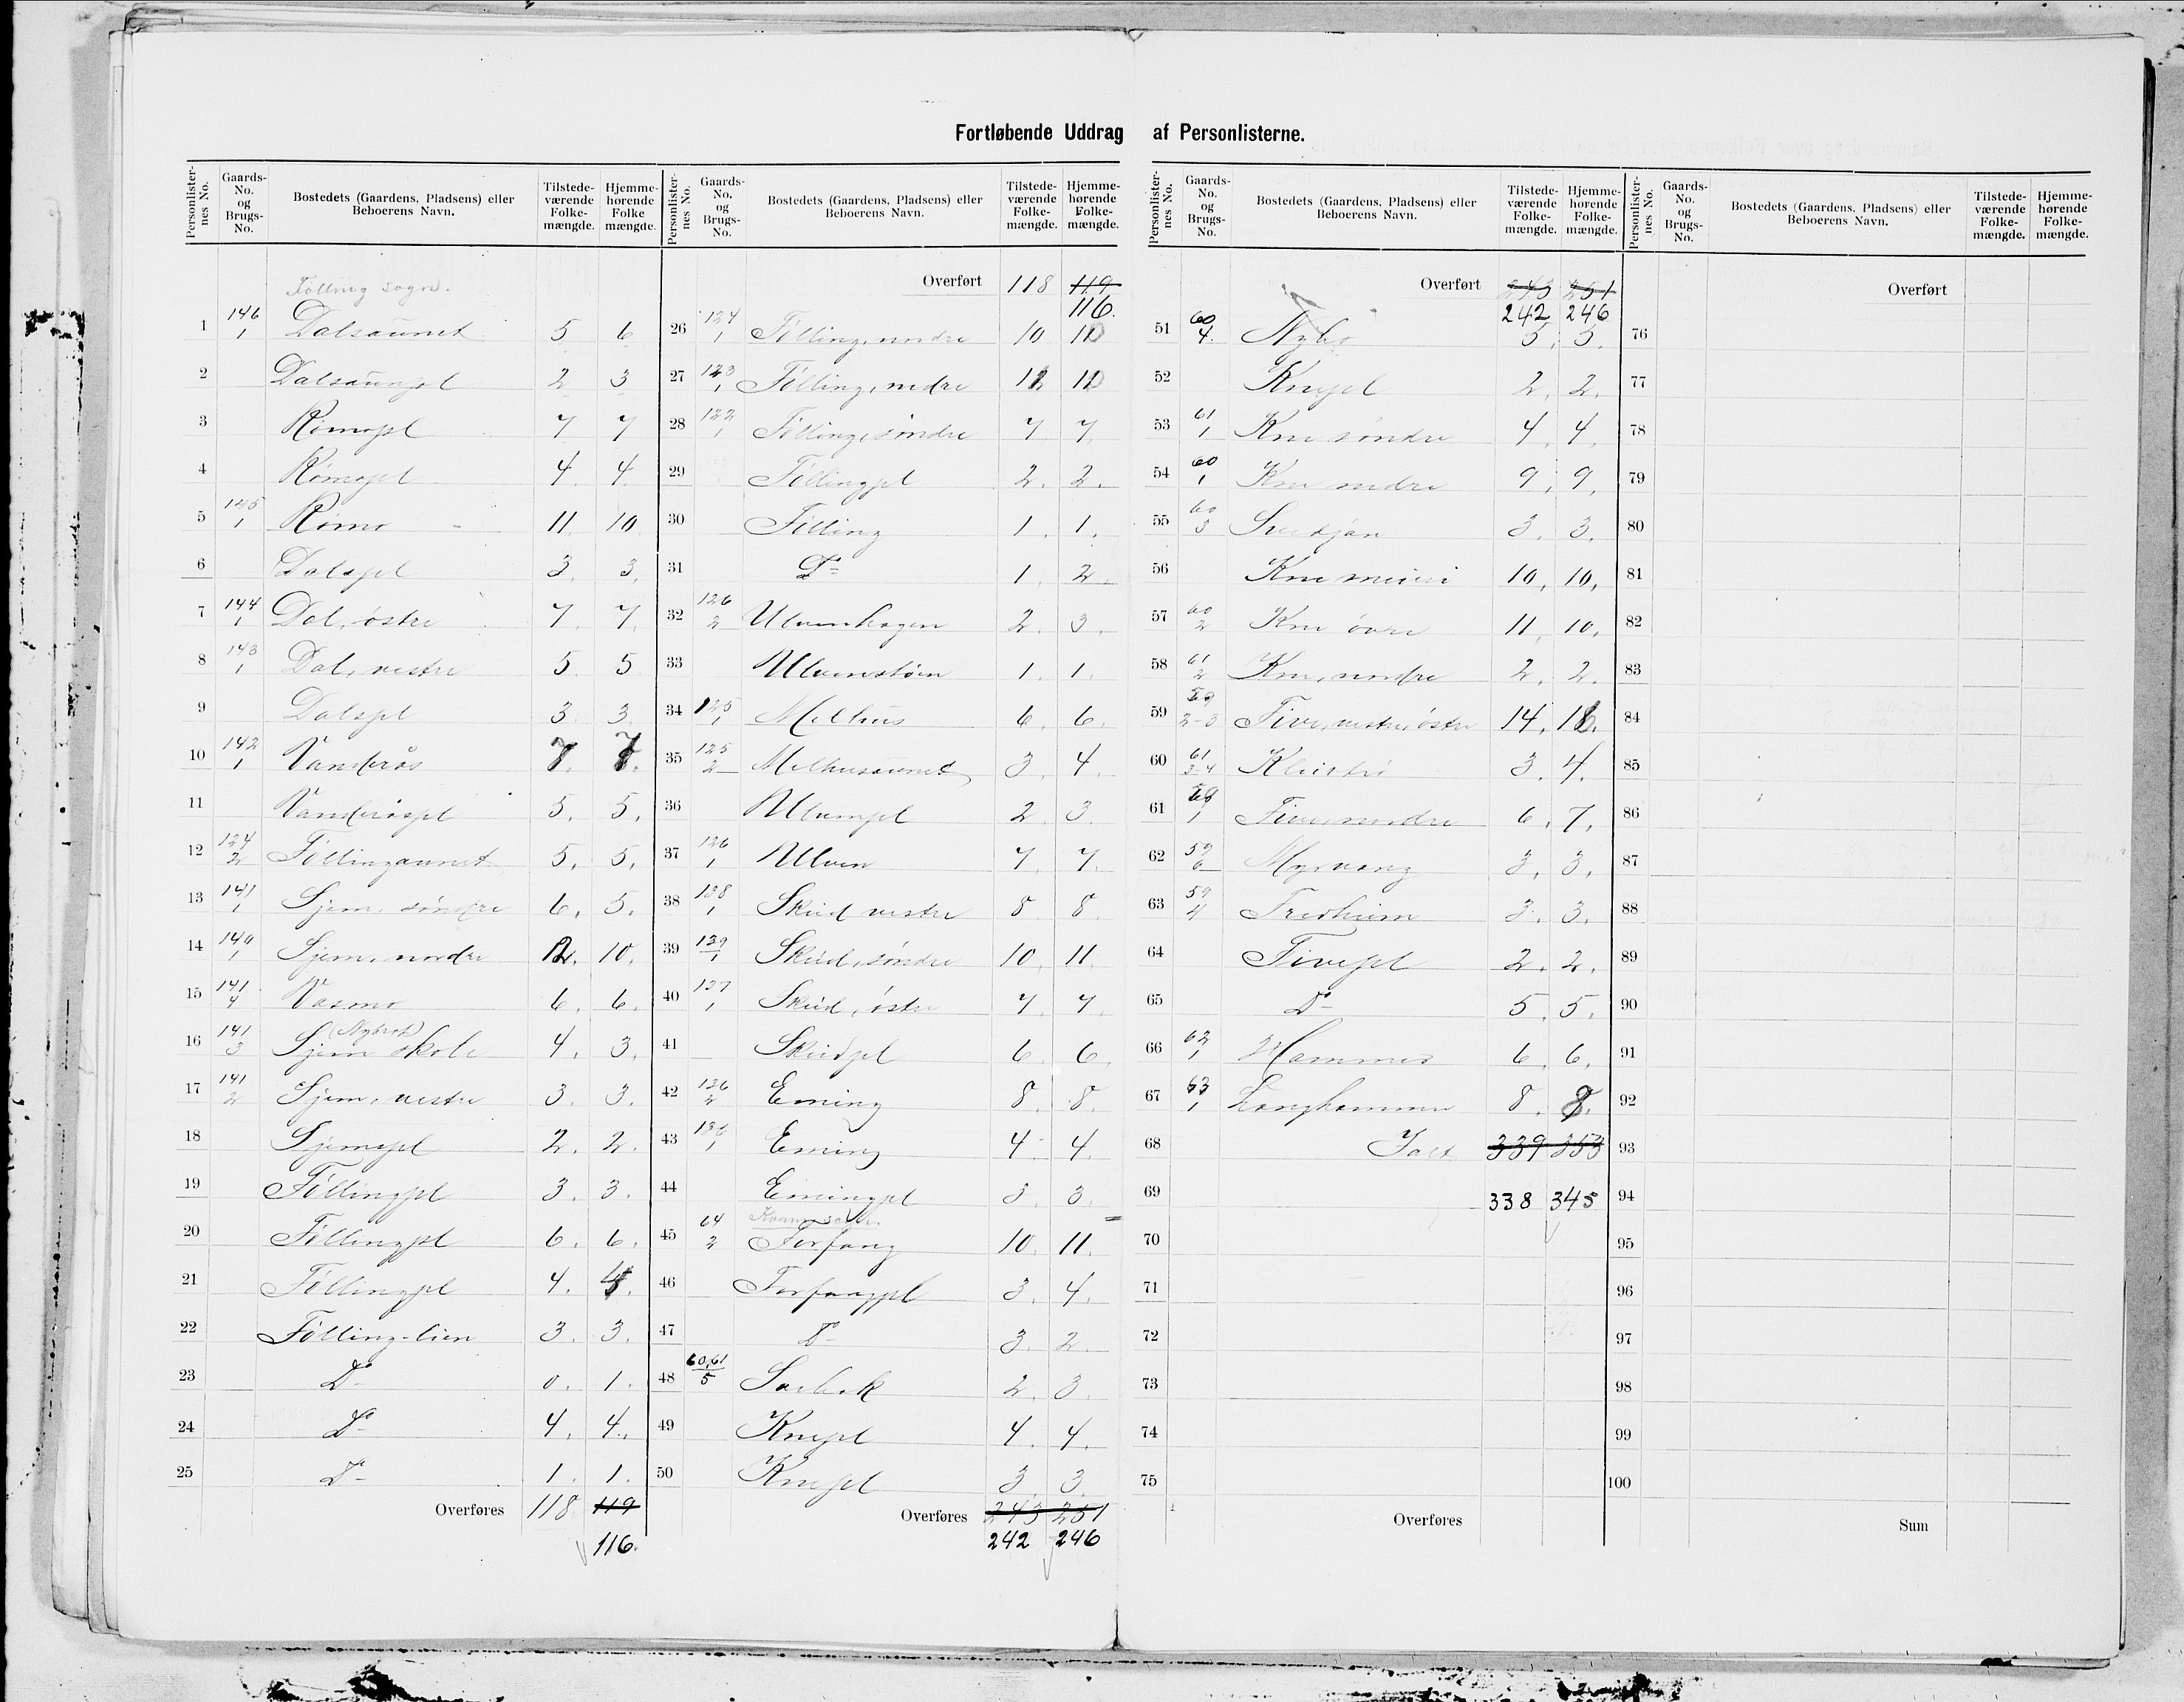 Fortløbende Uddrag af Personlisterne.
Personlister-nes No. | Gaards-No. og Brugs-No. | Bostedets (Gaardens, Pladsens) eller Beboerens Navn. | Tilstede-værende Folke-mængde. | Hjemme-hørende Folke mængde.
Følling sogn.
1 146/1 Dalsaunet 5 6
2 Dalsaunpl 2 3
3 Rømopl 7 7
4 Rømopl 4 4
5 145/1 Rømo 11 10
6 Dalspl 3. 3.
7 144/1 Dal, østre 7. 7.
8 143/1 Dal, vestre 5 5
9 Dalspl 3. 3.
10 142/1 Vanderås 7. 7.
11 Vanderåspl 5. 5.
12 124/2 Føllingaunet 5. 5.
13 141/1 Sjem, søndre 6. 5.
14 140/1 Sjem, nordre 12. 10.
15 141/4 Vasmo 6. 6.
16 141/3 Sjem skole (Nybrot) 4. 3.
17 141/2 Sjem, vestre 3. 3.
18 Sjemspl 2. 2.
19 Føllingpl 3. 3.
20 Føllingpl 6. 6.
21 Føllingpl 4. 4.
22 Følling-lien 3. 3.
23 Do 0. 1.
24 Do 4. 4.
25 Do 1. 1.
Overføres 118 119
116.
Personlister-nes No. | Gaards-No. og Brugs-No. | Bostedets (Gaardens, Pladsens) eller Beboerens Navn. | Tilstede-værende Folke-mængde. | Hjemme-hørende Folke-mængde.
Overført 118 119
116.
26 124/1 Følling, nordre 10 10
27 123/1 Følling, nedre 12 10
28 122/1 Følling, søndre 7 7.
29 Føllingpl 2. 2.
30 Følling 1. 1.
31 Do 1. 2.
32 126/2 Ulvenhagen 2. 3.
33 Ulvenstøen 1. 1.
34 125/1 Melhus 6. 6.
35 125/2 Melhusaunet 3. 4.
36 Ulvenpl 2. 3.
37 126/1 Ulven 7. 7.
38 138/1 Skeid vestre 8. 8.
39 139/1 Skeid, søndre 10. 11.
40 137/1 Skeid, østre 7. 7.
41 Skeidpl 6. 6.
42 136/2 Eming 8. 8.
43 136/1 Eming 4. 4.
44 Emingpl 3. 3.
Kvams sogn.
45 64/2 Forfang 10. 11.
46 Forfangpl 3. 4.
47 Do 3. 2.
48 60,61/5 Sørbek 2. 3.
49 Knepl 4. 4.
50 Knepl 3. 3.
Overføres 243 251
242 246
Personlister-nes No. | Gaards-No. og Brugs-No. | Bostedets (Gaardens, Pladsens) eller Beboerens Navn. | Tilstede-værende Folke-mængde. | Hjemme-hørende Folke-mængde.
Overført 243 251
242 246
51 60/4. Nybo 5. 5.
52 Knepl 2. 2.
53 61/1 Kne søndre 4. 4.
54 60/1 Kne nedre 9. 9.
55 60/3 3. 3.
56 Kne meieri 10. 10.
57 60/2 Kne øvre 11. 10.
58 61/2 Kne, nordre 2. 2.
59 59/2-3 Five, vestre, østre 14. 16.
60 61/3-4 3. 4.
61 59/1 Five, nordre 6. 7.
62 59/6 Myrvang 3. 3.
63 59/4 Fredheim 3. 3.
64 Fivepl 2. 2.
65 Do 5. 5.
66 62/1 Hammer 6. 6.
67 63/1 Langhammer 8. 8.
68 Ialt 339 353
69 338 345
70
71
72
73
74
75
Overføres
Personlister-nes No. | Gaards-No. og Brugs-No. | Bostedets (Gaardens, Pladsens) eller Beboerens Navn. | Tilstede-værende Folke-mængde. | Hjemme-hørende Folke-mængde.
Overført
76
77
78
79
80
81
82
83
84
85
86
87
88
89
90
91
92
93
94
95
96
97
98
99
100
Sum